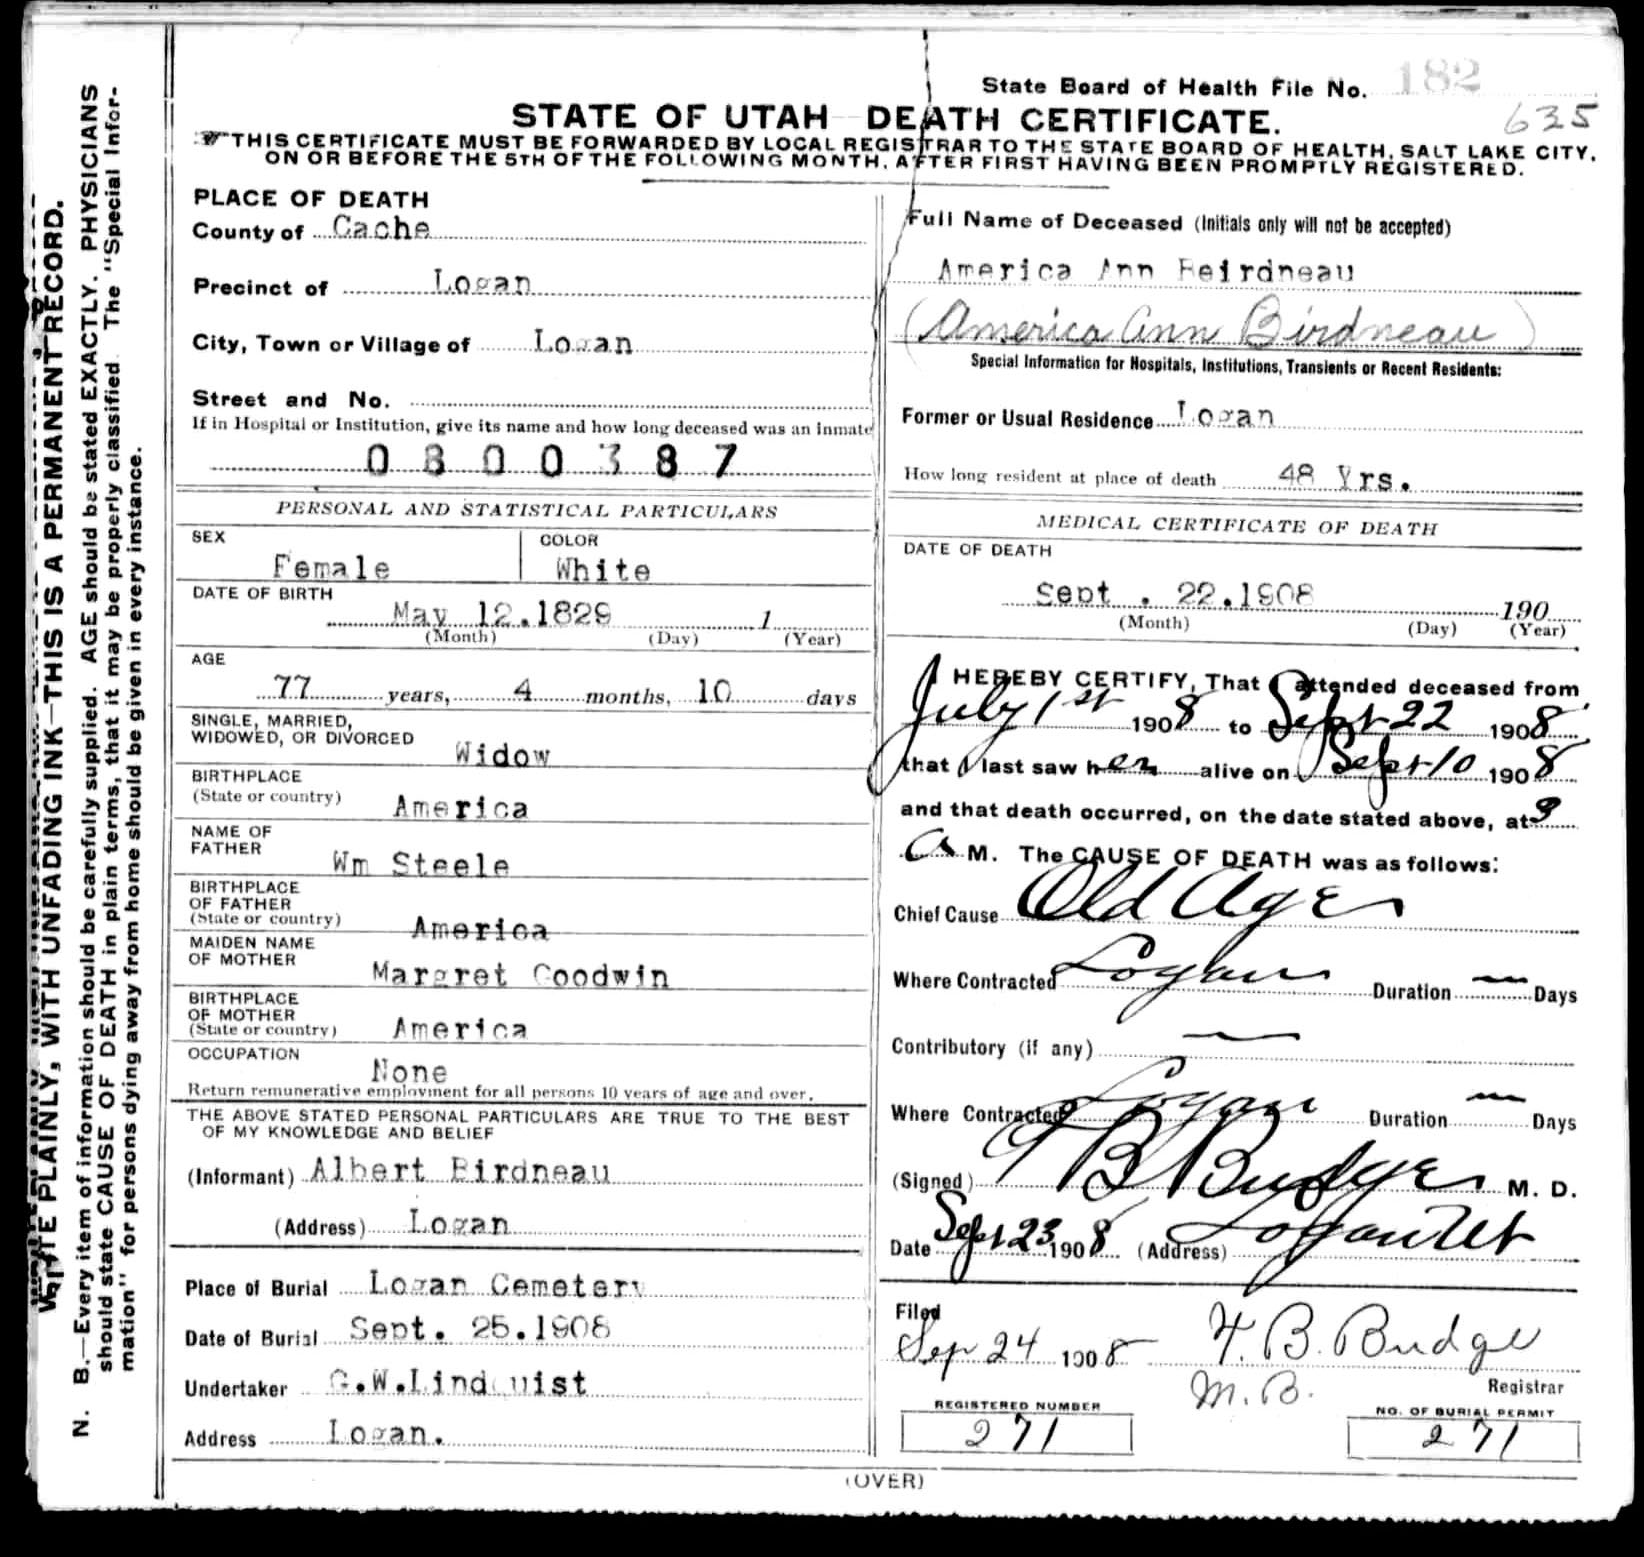 State Board of Health File No. 182
635
STATE OF UTAH—DEATH CERTIFICATE.
THIS CERTIFICATE MUST BE FORWARDED BY LOCAL REGISTRAR TO THE STATE BOARD OF HEALTH, SALT LAKE CITY,
ON OR BEFORE THE 5TH OF THE FOLLOWING MONTH, AFTER FIRST HAVING BEEN PROMPTLY REGISTERED.
WRITE PLAINLY, WITH UNFADING INK—THIS IS A PERMANENT RECORD.
N. B.—Every item of information should be carefully supplied. AGE should be stated EXACTLY. PHYSICIANS
should state CAUSE OF DEATH in plain terms, that it may be properly classified. The "Special Infor-
mation" for persons dying away from home should be given in every instance.
PLACE OF DEATH
County of Cache
Precinct of Logan
City, Town or Village of Logan
Street and No.
If in Hospital or Institution, give its name and how long deceased was an inmate
0 8 0 0 3 8 7
PERSONAL AND STATISTICAL PARTICULARS
SEX COLOR
Female White
DATE OF BIRTH
May 12.1829 1
(Month) (Day) (Year)
AGE
77 years, 4 months, 10 days
SINGLE, MARRIED,
WIDOWED, OR DIVORCED Widow
BIRTHPLACE
(State or country) America
NAME OF
FATHER Wm Steele
BIRTHPLACE
OF FATHER
(State or country) America
MAIDEN NAME
OF MOTHER Margret Goodwin
BIRTHPLACE
OF MOTHER
(State or country) America
OCCUPATION
None
Return remunerative employment for all persons 10 years of age and over.
THE ABOVE STATED PERSONAL PARTICULARS ARE TRUE TO THE BEST
OF MY KNOWLEDGE AND BELIEF
(Informant) Albert Birdneau
(Address) Logan
Place of Burial Logan Cemetery
Date of Burial Sept. 25.1908
Undertaker G.W.Lindquist
Address Logan.
Full Name of Deceased (Initials only will not be accepted)
America Ann Beirdneau
(America Ann Birdneau)
Special Information for Hospitals, Institutions, Transients or Recent Residents:
Former or Usual Residence Logan
How long resident at place of death 48 Yrs.
MEDICAL CERTIFICATE OF DEATH
DATE OF DEATH
Sept . 22.1908 190
(Month) (Day) (Year)
I HEREBY CERTIFY, That I attended deceased from
July 1st 1908 to Sept 22 1908
that I last saw her alive on Sept 10 1908
and that death occurred, on the date stated above, at 9
A M. The CAUSE OF DEATH was as follows:
Chief Cause Old Age
Where Contracted Logan Duration — Days
Contributory (if any) —
Where Contracted Logan Duration — Days
(Signed) T B Budge M. D.
Date Sept 23 1908 (Address) Logan Ut
Filed
Sep 24 1908 T. B. Budge
M.B. Registrar
REGISTERED NUMBER NO. OF BURIAL PERMIT
271 271
(OVER)